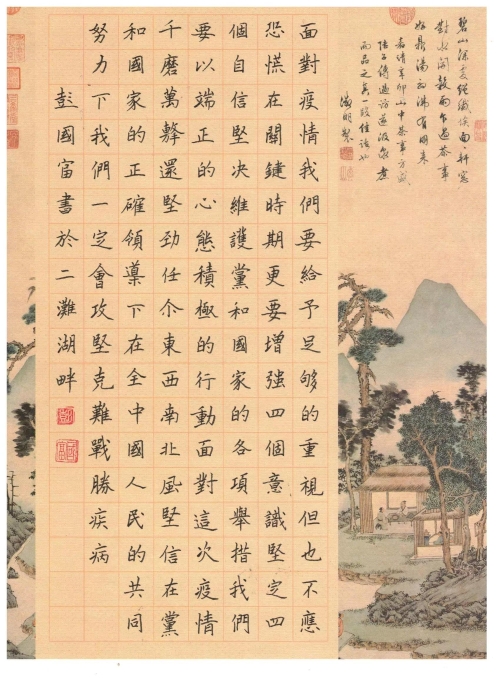 碧山深處絕纖埃面々軒窗
對水開穀雨乍過茶事
好鼎湯初沸有朋來
嘉靖辛卯山中茶事方盛
陸子傳過訪遂汲泉煮
而品之真一段佳話也
徵明製
面對疫情我們要給予足夠的重視但也不應
恐慌在關鍵時期更要增强四個意識堅定四
個自信堅决維護黨和國家的各項舉措我們
要以端正的心態積極的行動面對這次疫情
千磨萬擊還堅劲任尒東西南北風堅信在黨
和國家的正確領導下在全中國人民的共同
努力下我們一定會攻堅克難戰勝疾病
彭國富書於二灘湖畔